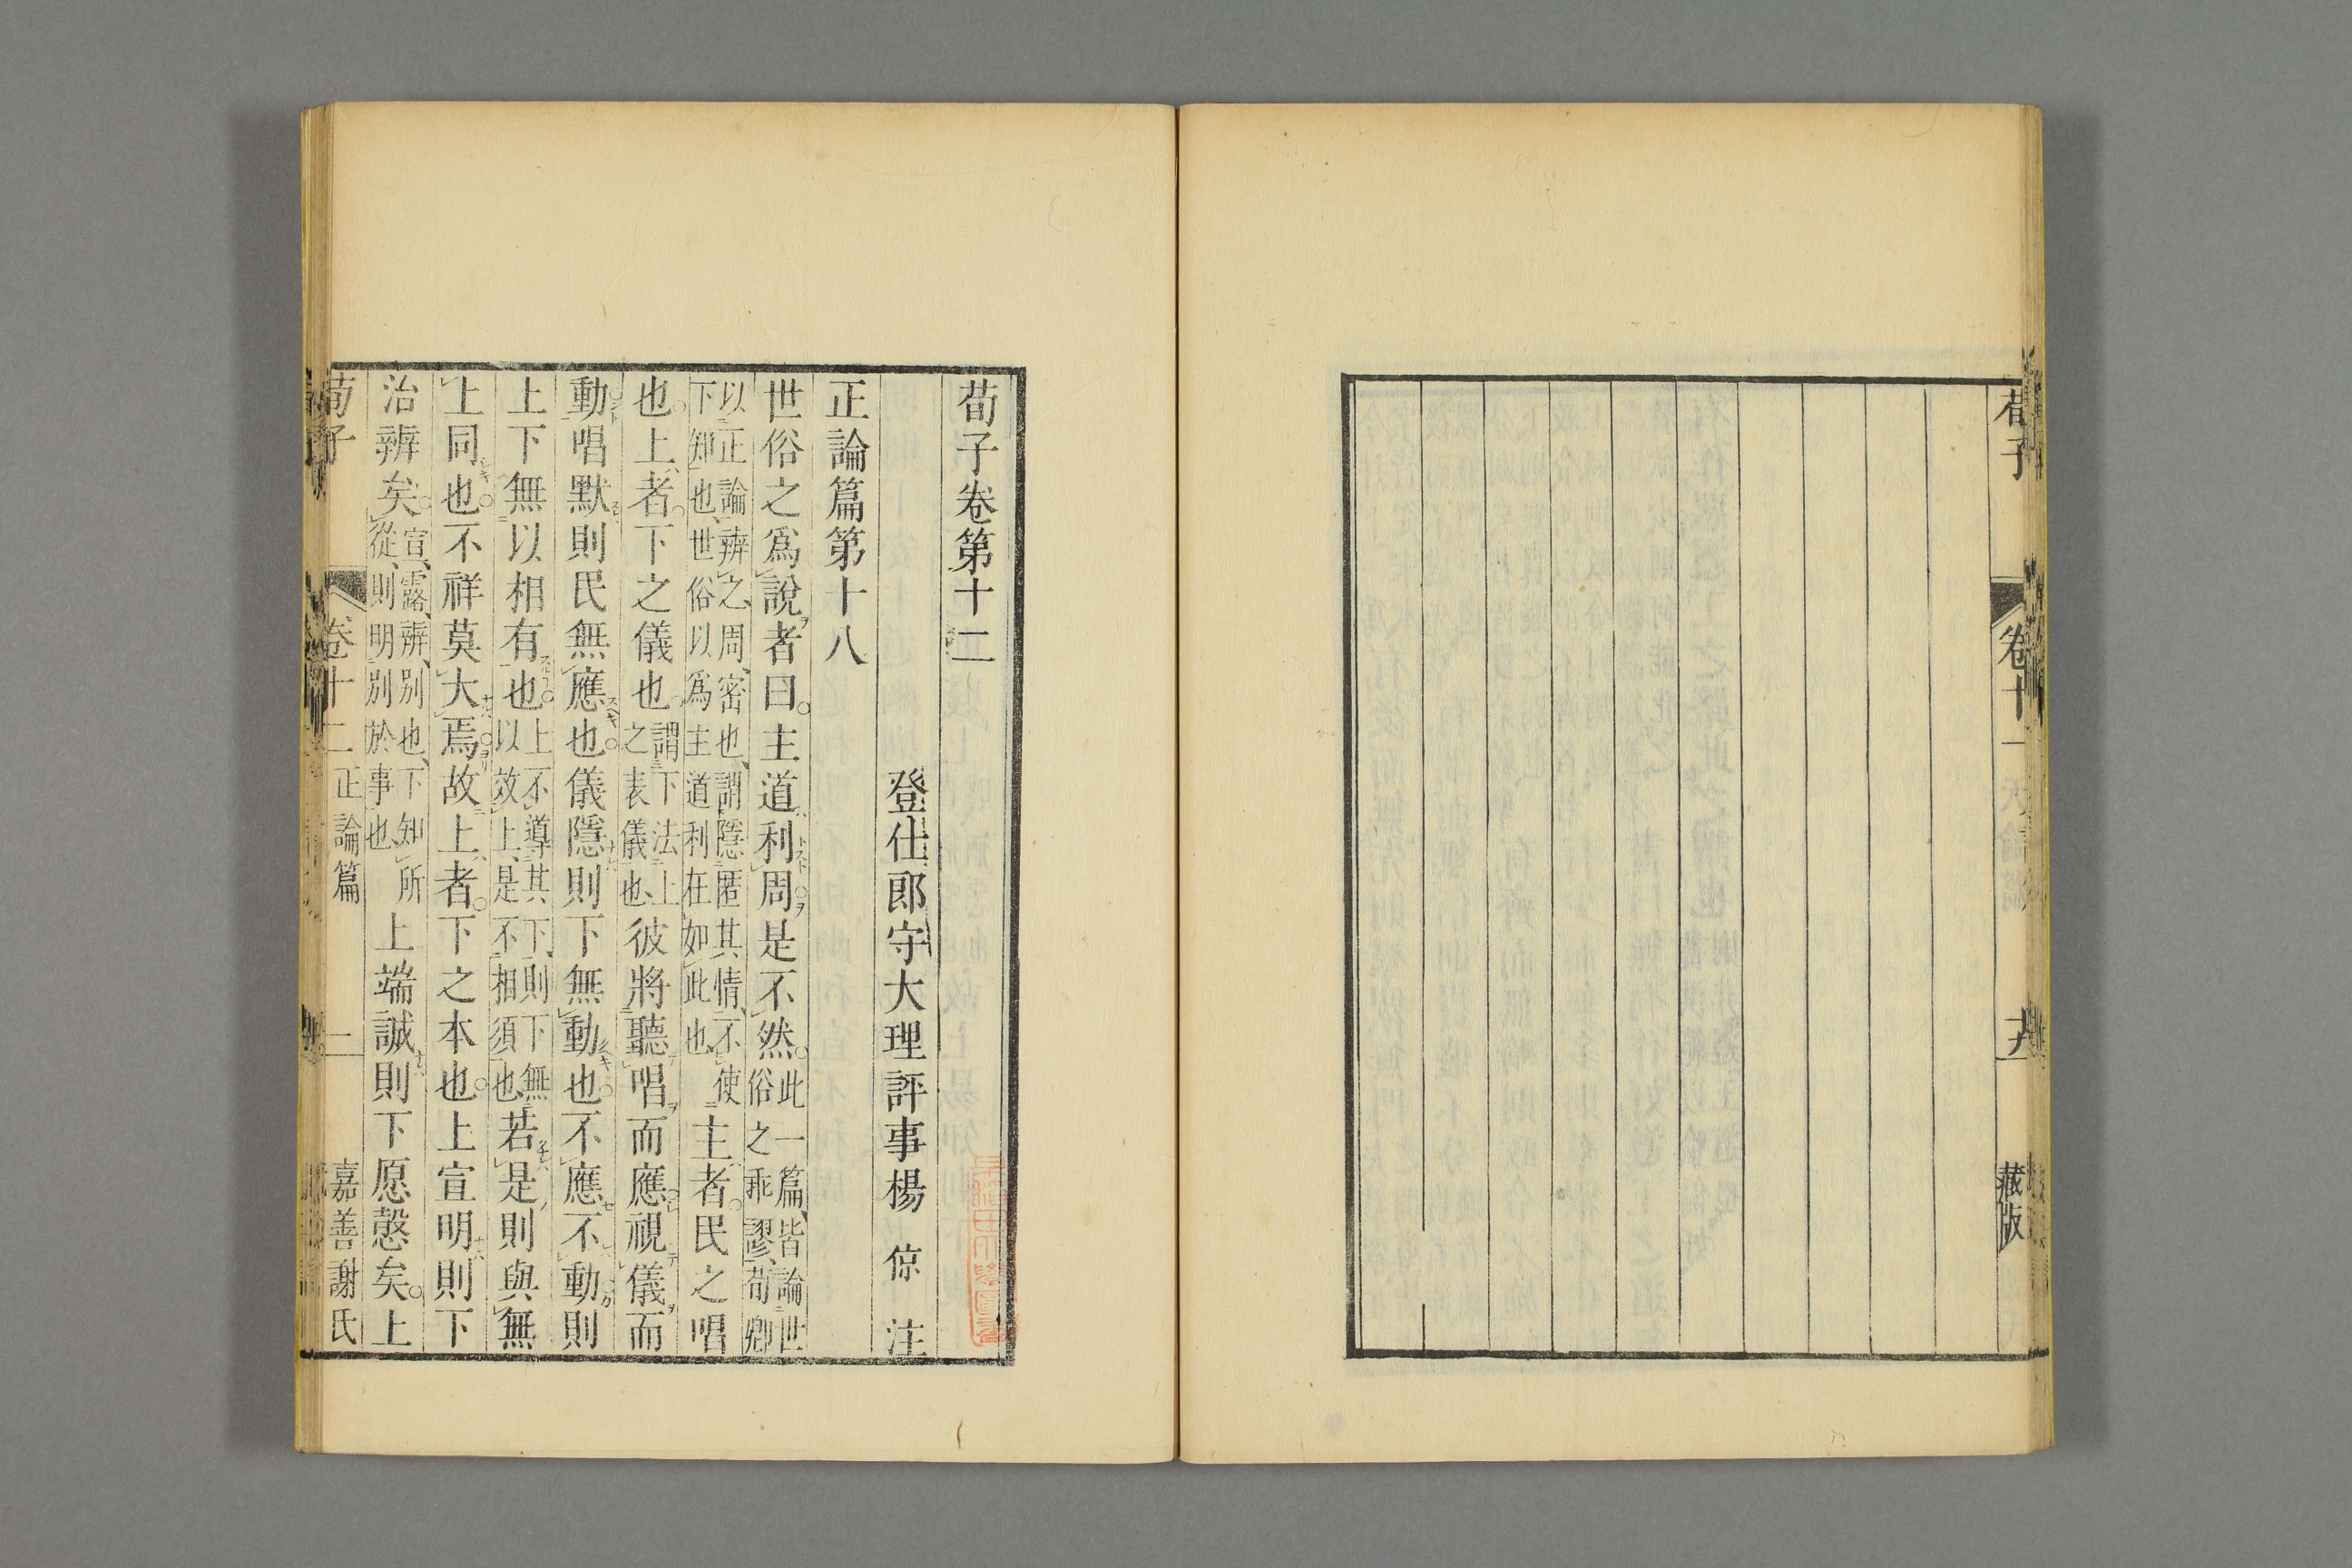 荀子 卷十一 藏版
荀子卷第十二
登仕郎守大理評事楊 倞 注
正論篇第十八
世俗之爲說者曰。主道利周。是不然。此一篇、皆論世俗之乖謬、荀卿
以正論辨之、周、密也、謂隱匿其情、不使下知也、世俗以爲主道利在如此也、主者。民之唱
也。上者。下之儀也。謂下法上之表儀也、彼將聽唱而應。視儀而
動。唱默則民無應也。儀隱則下無動也。不應不動。則
上下無以相有也。上不導其下、則下無以效上、是不相須也、若是則與無
上同也。不祥莫大焉。故上者。下之本也。上宣明則下
治辨矣。宣、露、辨、別也、下知所從、則明別於事也、上端誠則下愿慤矣。上
荀子 卷十二 正論篇 一 嘉善謝氏